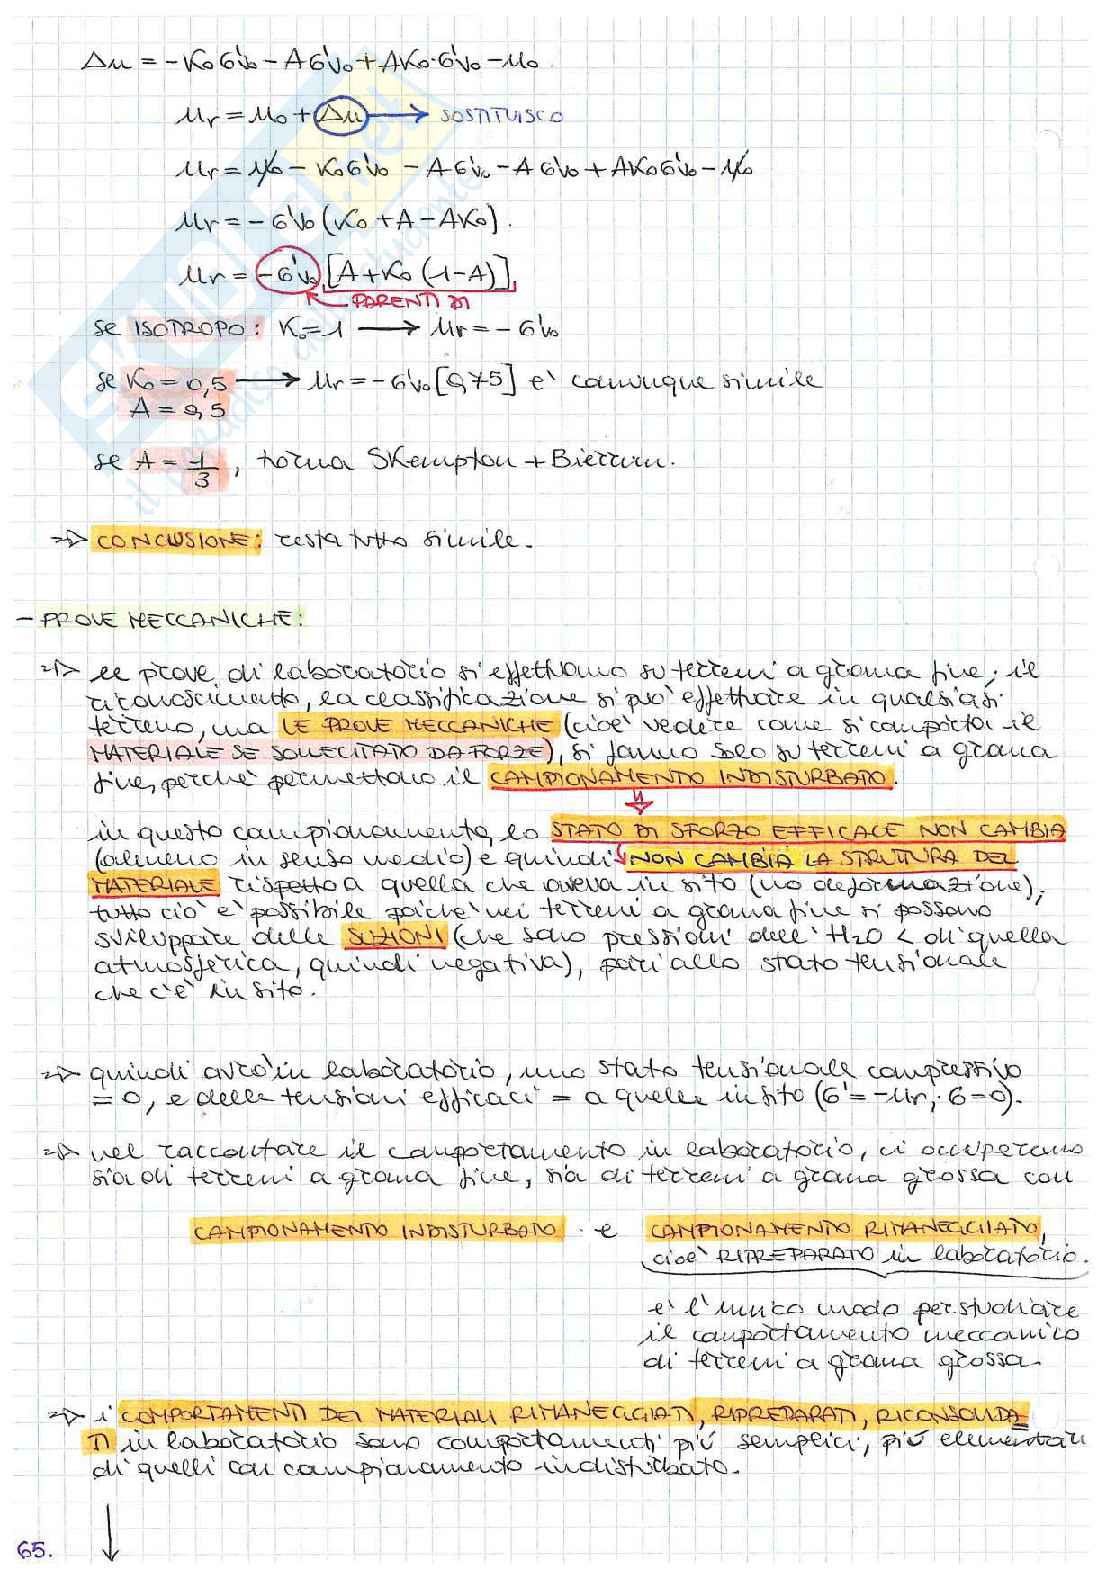 Δu = -K₀σ'v₀ - Aσ'v₀ + AK₀·σ'v₀ - u₀
ur = u₀ + Δu → SOSTITUISCO
ur = u₀ - K₀σ'v₀ - Aσ'v₀ - Aσ'v₀ + AK₀σ'v₀ - u₀
ur = -σ'v₀ (K₀ + A - AK₀).
ur = -σ'v₀ [A + K₀ (1-A)]
PARENTI DI
se ISOTROPO: K₀ = 1 → ur = -σ'v₀
se K₀ = 0,5 → ur = -σ'v₀ [0,75] è comunque simile
A = 0,5
se A = 1/3, torna Skempton + Bierrum.
⇒ CONCLUSIONE: resta tutto simile.
- PROVE MECCANICHE:
⇒ le prove di laboratorio si effettuano su terreni a grana fine; il
riconoscimento, la classificazione si può effettuare in qualsiasi
terreno, ma LE PROVE MECCANICHE (cioè vedere come si comporta il
MATERIALE SE SOLLECITATO DA FORZE), si fanno solo su terreni a grana
fine, perchè permettono il CAMPIONAMENTO INDISTURBATO.
in questo campionamento, lo STATO DI SFORZO EFFICACE NON CAMBIA
(almeno in senso medio) e quindi NON CAMBIA LA STRUTTURA DEL
MATERIALE rispetto a quella che aveva in sito (no deformazione);
tutto ciò è possibile poichè nei terreni a grana fine si possono
sviluppare delle SUZIONI (che sono pressioni dell'H2O < di quella
atmosferica, quindi negativa), pari allo stato tensionale
che c'è in sito.
⇒ quindi avrò in laboratorio, uno stato tensionale compressivo
= 0, e delle tensioni efficaci = a quelle in sito (σ' = -ur; σ = 0).
⇒ nel raccontare il comportamento in laboratorio, ci occuperemo
sia di terreni a grana fine, sia di terreni a grana grossa con
CAMPIONAMENTO INDISTURBATO e CAMPIONAMENTO RIMANEGGIATO,
cioè RIPREPARATO in laboratorio.
è l'unico modo per studiare
il comportamento meccanico
di terreni a grana grossa.
⇒ i COMPORTAMENTI DEI MATERIALI RIMANEGGIATI, RIPREPARATI, RICONSOLIDA-
TI in laboratorio sono comportamenti più semplici, più elementari
di quelli con campionamento indisturbato.
65.